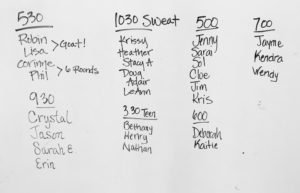 530
Robin
Lisa > Goat!
Corinne
Phil > 6 Rounds
930
Crystal
Jason
Sarah E.
Erin
1030 Sweat
Krissy
Heather
Stacy A
Doug
Adair
LeAnn
330 Teen
Bethany
Henry
Nathan
500
Jenny
Sarai
Sol
Cloe
Jim
Kris
600
Deborah
Kaitie
700
Jayme
Kendra
Wendy